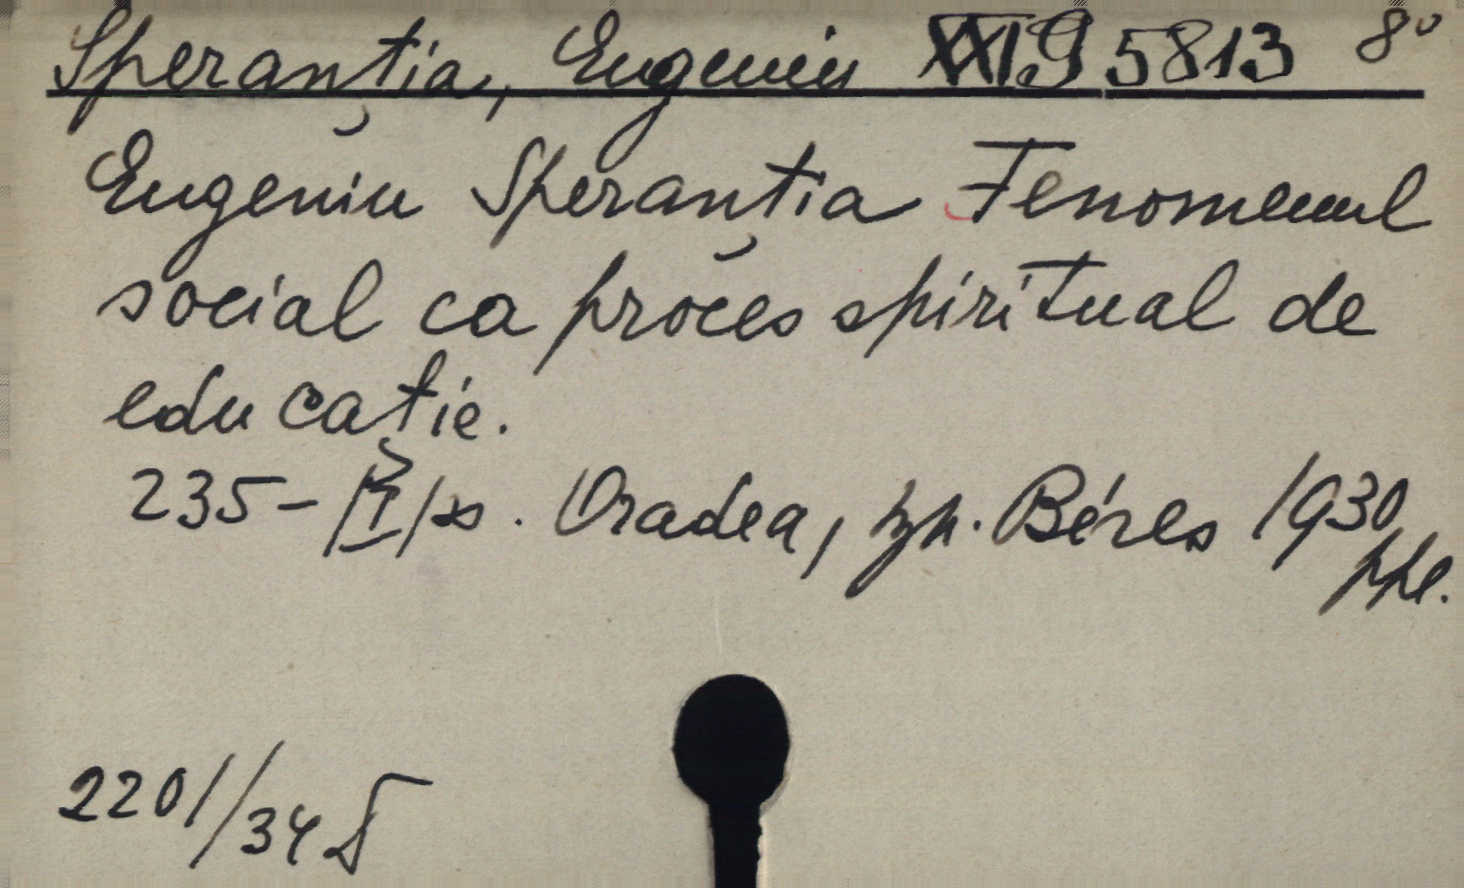 Speranția, Eugeniu XXI.9 5813 8°
Eugeniu Speranția Fenomenul
social ca proces spiritual de
educație.
235- /I/ s. Oradea, typ. Béres 1930
ppl.
2201//34